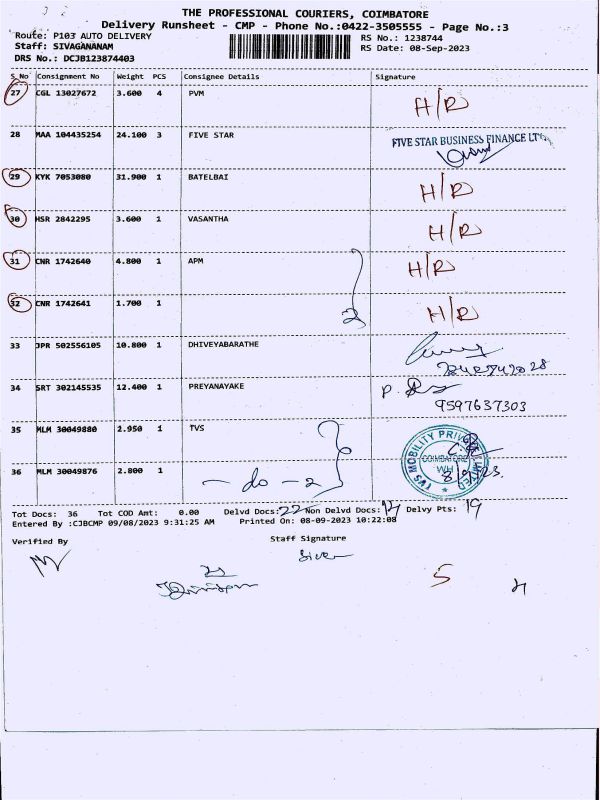 THE PROFESSIONAL COURIERS, COIMBATORE
Delivery Runsheet - CMP - Phone No.:0422-3505555 - Page No.:3
Route: P103 AUTO DELIVERY RS No.: 1238744
Staff: SIVAGANANAM RS Date: 08-Sep-2023
DRS No.: DCJB123874403
S.No Consignment No Weight PCS Consignee Details Signature
27 CGL 13027672 3.600 4 PVM H/R
28 MAA 104435254 24.100 3 FIVE STAR FIVE STAR BUSINESS FINANCE LTD
29 KYK 7053080 31.900 1 BATELBAI H/R
30 HSR 2842295 3.600 1 VASANTHA H/R
31 CNR 1742640 4.800 1 APM H/R
32 CNR 1742641 1.700 1 2 H/R
33 JPR 502556105 10.800 1 DHIVEYABARATHE
34 SRT 302145535 12.400 1 PREYANAYAKE P.
9597637303
35 MLM 30049880 2.950 1 TVS
TVS MOBILITY PRIVATE LIMITED
COIMBATORE
WH
36 MLM 30049876 2.800 1 - do - 2
Tot Docs: 36 Tot COD Amt: 0.00 Delvd Docs: 22 Non Delvd Docs: 14 Delvy Pts: 19
Entered By :CJBCMP 09/08/2023 9:31:25 AM Printed On: 08-09-2023 10:22:08
Verified By Staff Signature
5